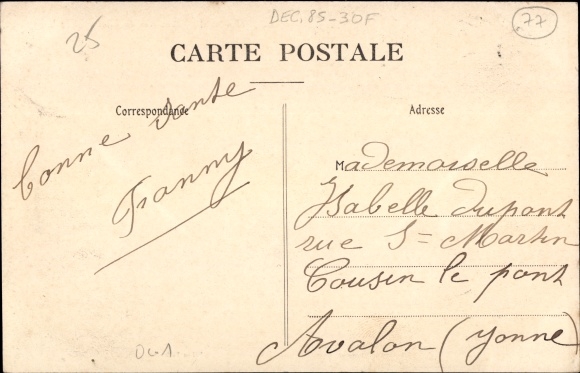 DEC. 85-30F
77
25
CARTE POSTALE
Correspondance
Adresse
bonne sante
Franny
Mademoiselle
Isabelle dupont
rue S= Martin
Cousin le pont
Avalon (yonne)